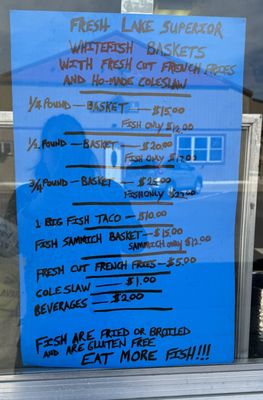 FRESH LAKE SUPERIOR
WHITEFISH BASKETS
WITH FRESH CUT FRENCH FRIES
AND HO-MADE COLESLAW
1/4 POUND — BASKET — $15.00
FISH ONLY $12.00
1/2 POUND — BASKET — $20.00
FISH ONLY $17.00
3/4 POUND — BASKET — $25.00
FISH ONLY $22.00
1 BIG FISH TACO — $10.00
FISH SAMMICH BASKET — $15.00
SAMMICH ONLY $12.00
FRESH CUT FRENCH FRIES — $5.00
COLESLAW — $1.00
BEVERAGES — $2.00
FISH ARE FRIED OR BROILED
AND ARE GLUTEN FREE
EAT MORE FISH!!!